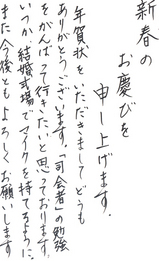 新春の
お慶びを
申し上げます.
年賀状をいただきましてどうも
ありがとうございます.「司会者」の勉強
をがんばって行きたいと思っております.
いつか結婚式場でマイクを持てるように.
また今後ともよろしくお願いします